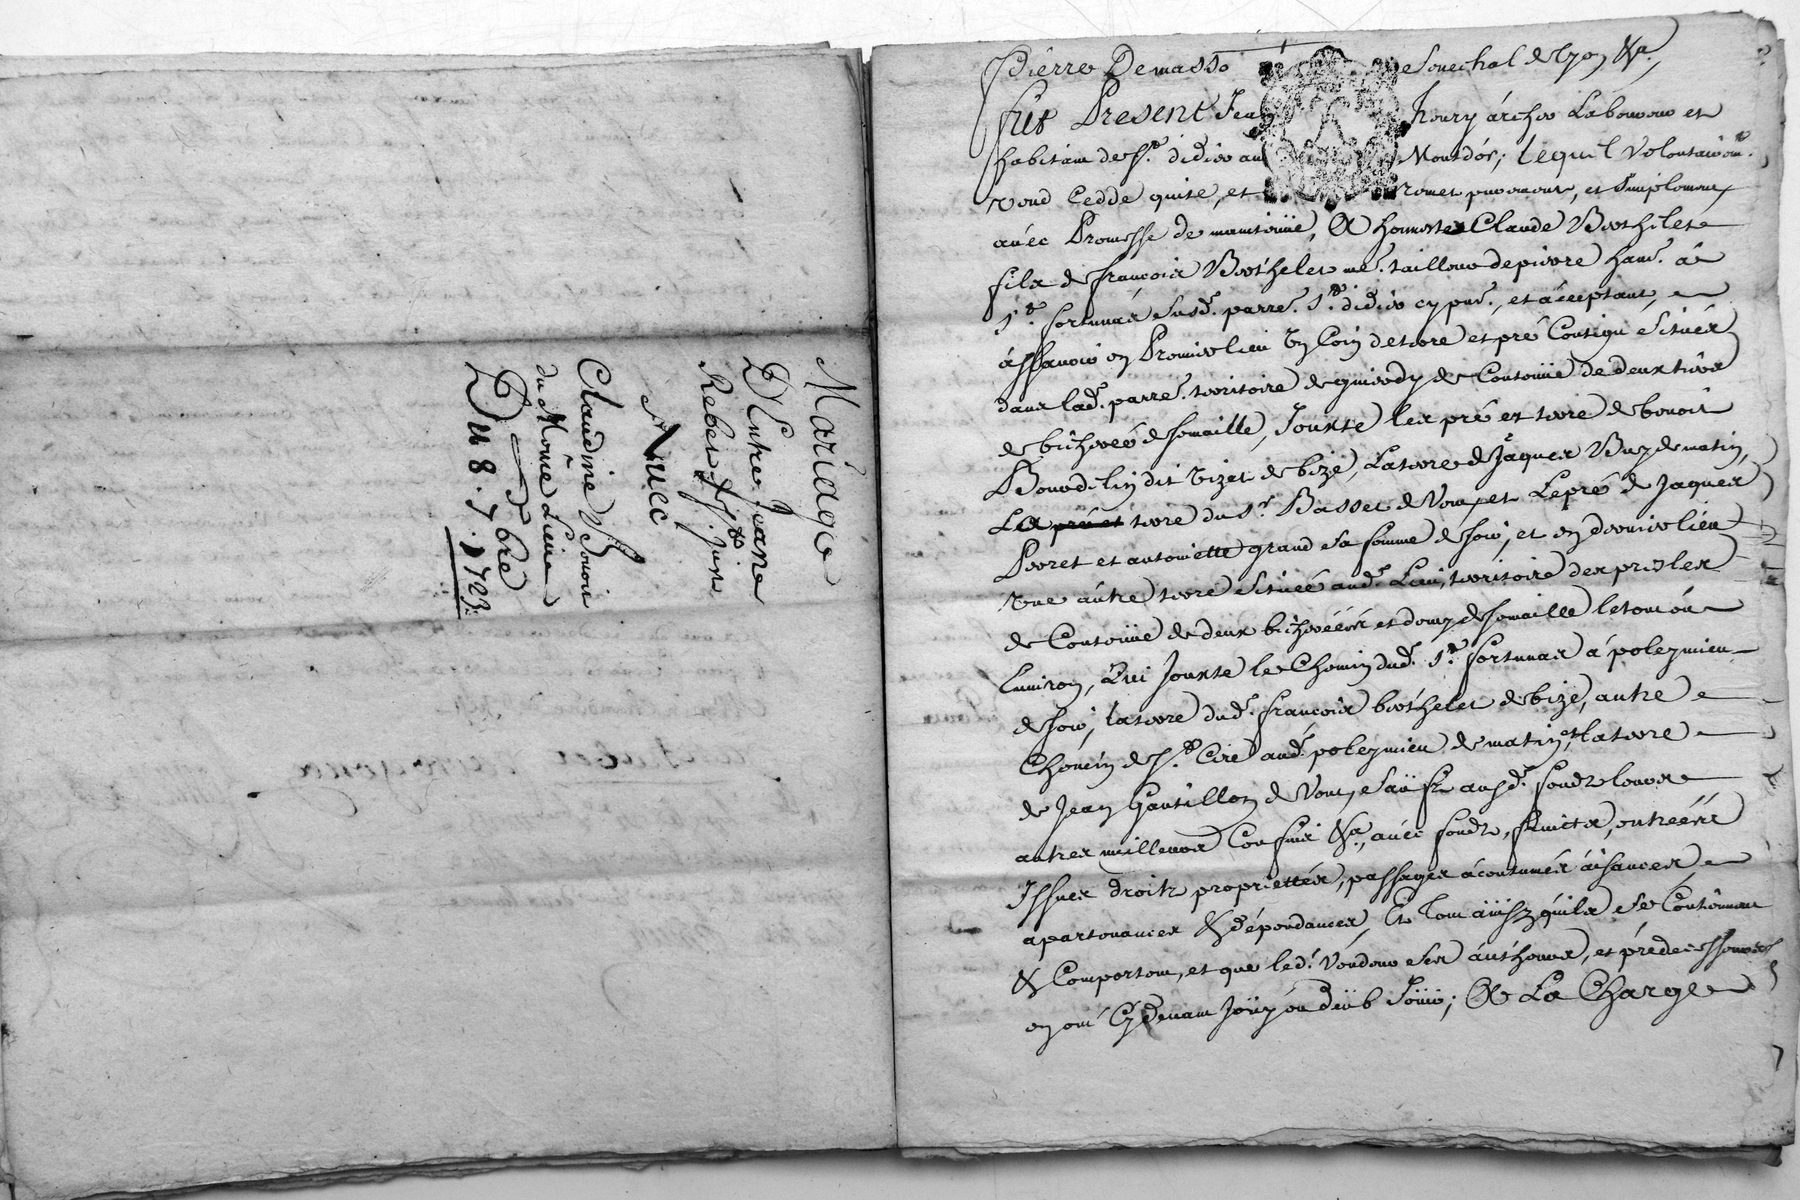 Mariage
D'Entre Jeane
Rebet
Avec
Claudine Bonoir
du Mème Lieu
Du 8. 7bre
1723.
Pierre Demasso Senechal de Lyon &a.
fut Present Jean henry archer Laboureur et
habitant de St. didier au Montdor; lequel volontairemt.
vend Cedde quite, et remet purement, et simplement
avec Promesse de maintenüe, A honneste Claude Berthelet
fils de françois Berthelet me. tailleur depierre hant. à
St. fortunat susde. parre. St. didier cy pnt., et àcceptant,
àssavoir en Premier lieu Un Coin deterre et pré Contigu Scituéz
dans lade. parre. territoire de de Contenüe de deux tiers
de bicherée de semaille, Jouxte les pré et terre de benoit
Bourdelin dit Vizet de bize, Laterre de Jaques Buy de matin,
La terre du sr. Basset de Vent, et Lepré de Jaques
Peret et antoinette grand sa femme de soir, et en dernier lieu
Une àutre terre scituée aud. Lieu, territoire des
de Contenüe de deux bicherééz et demy de semaille letout ou
Environ, Qui Jouxte le Chemin dud. St. fortunat à poleymieu
de soir, laterre dud. françois berthelet de bize, autre
Chemin de St. Cire aud. poleymieu de matin, et laterre
de Jean Gantillon de Vent, Sauf ausd. fondz leurs
autres meilleurs Confins &a., avec fondz, fruicts, entrééz
Issues droitz proprietéz, passages àcoutuméz àisances
apartenances & dépendances, Et Tout ainsy qu'ils se Contiennent
& Comportent, et que led. Vendeur ses àutheurs, et prédecesseurs
en ont Cydevant Joüy ou düb Joüir; A La Charge